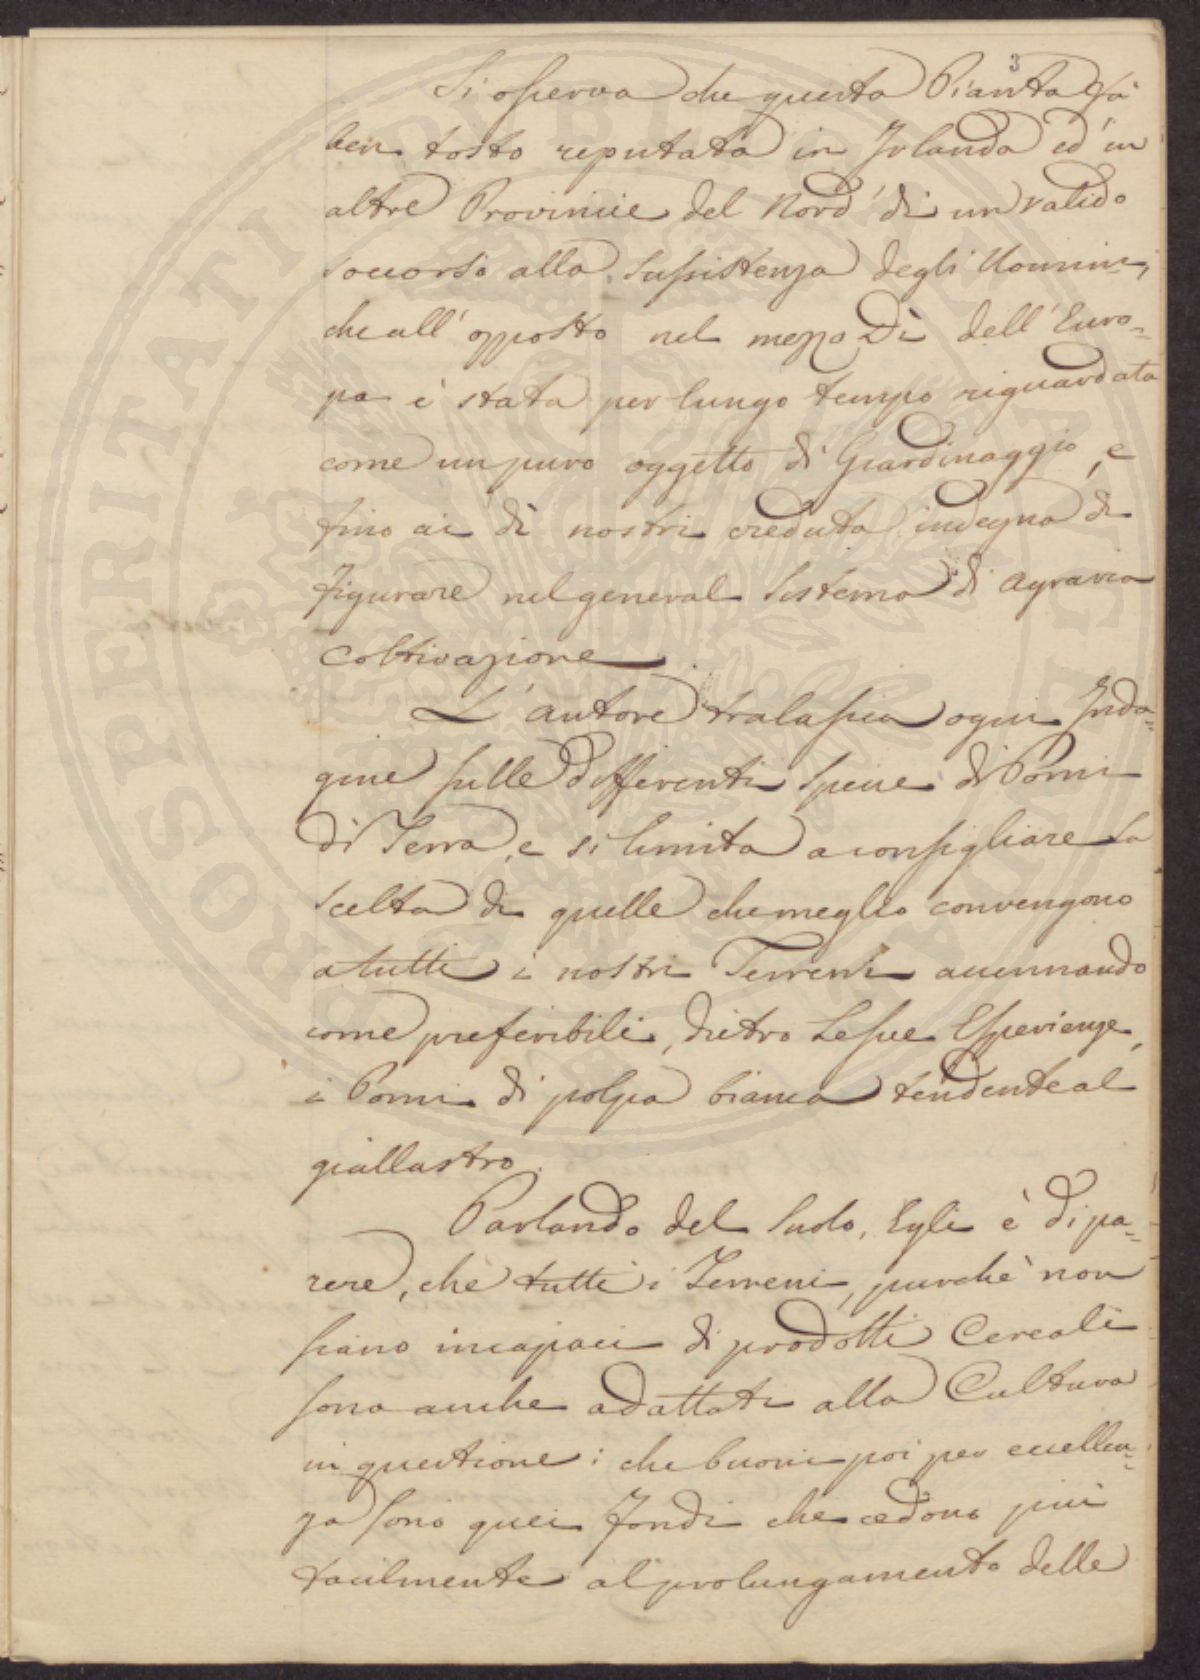 3
Si osserva che questa Pianta fù
ben tosto reputata in Irlanda ed in
altre Provincie del Nord di un valido
soccorso alla sussistenza degli Uomini,
che all'opposto nel mezzo Dì dell'Euro=
pa è stata per lungo tempo riguardata
come un puro oggetto di Giardinaggio, e
fino ai dì nostri creduta indegna di
figurare nel general Sistema di agraria
coltivazione.
L'autore tralascia ogni Inda=
gine sulle differenti Specie di Pomi
di Terra, e si limita a consigliare la
scelta di quelle che meglio convengono
a tutti i nostri Terreni accennando
come preferibili, dietro le sue Esperienze,
i Pomi di polpa bianca tendente al
giallastro.
Parlando del Suolo, Egli è di pa=
rere, che tutti i Terreni, purchè non
siano incapaci di prodotti Cereali
sono anche adattati alla Cultura
in questione: che buoni poi per eccellen=
za sono quei fondi che cedono più
facilmente al prolungamento delle
PROSPERITATI PUBLICAE AUGENDAE